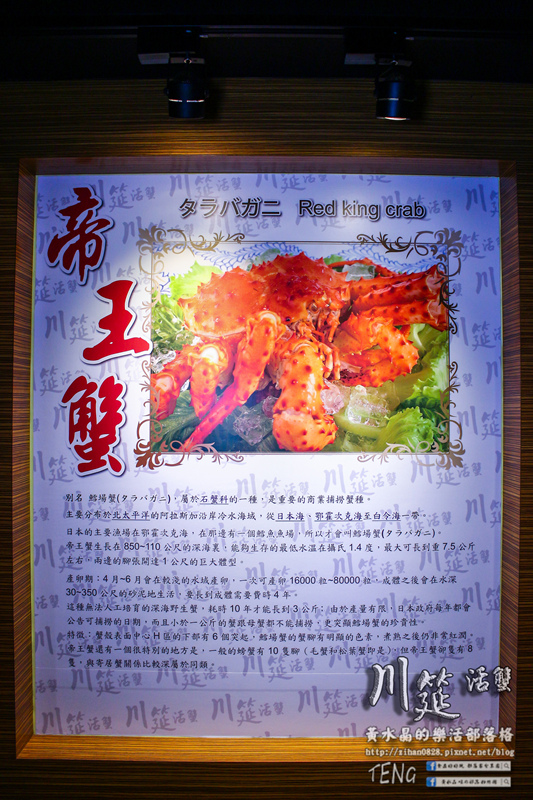 タラバガニ Red king crab
帝王蟹
別名 鱈場蟹(タラバガニ)，屬於石蟹科的一種，是重要的商業捕撈蟹種。
主要分布於北太平洋的阿拉斯加沿岸冷水海域，從日本海、鄂霍次克海至白令海一帶。
日本的主要漁場在鄂霍次克海，在那邊有一個鱈魚魚場，所以才會叫鱈場蟹(タラバガニ)。
帝王蟹生長在 850~110 公尺的深海裏，能夠生存的最低水溫在攝氏 1.4 度，最大可長到重 7.5 公斤
左右，兩邊的腳張開達 1 公尺的巨大體型。
產卵期：4 月~6 月會在較淺的水域產卵，一次可產卵 16000 粒~80000 粒，成體之後會在水深
30~350 公尺的砂泥地生活，要長到成體需要費時 4 年。
這種無法人工培育的深海野生蟹，耗時 10 年才能長到 3 公斤；由於產量有限，日本政府每年都會
公告可捕撈的日期，而且小於一公斤的蟹跟母蟹都不能捕撈，更突顯鱈場蟹的珍貴性。
特徵：蟹殼表面中心 H 區的下部有 6 個突起，鱈場蟹的蟹腳有明顯的色素，煮熟之後仍非常紅潤。
帝王蟹還有一個很特別的地方是，一般的螃蟹有 10 隻腳（毛蟹和松葉蟹即是），但帝王蟹卻隻有 8
隻，與寄居蟹關係比較深屬於同類。
川筵活蟹
黃水晶的樂活部落格
http://zihao0828.pixnet.net/blog
TENG